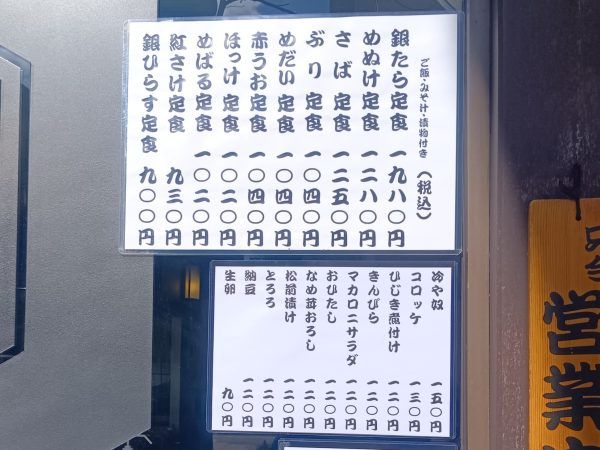 ご飯・みそ汁・漬物付き(税込)
銀たら定食 一九八〇円
めぬけ定食 一二八〇円
さば 定食 一二五〇円
ぶり 定食 一〇四〇円
めだい 定食 一〇四〇円
赤うお定食 一〇四〇円
ほっけ 定食 一〇二〇円
めばる定食 一〇二〇円
紅さけ定食 九三〇円
銀ひらす定食 九〇〇円
冷や奴 一五〇円
コロッケ 一三〇円
ひじき煮付け 一二〇円
きんぴら 一二〇円
マカロニサラダ 一二〇円
おひたし 一二〇円
なめ茸おろし 一二〇円
松前漬け 一二〇円
とろろ 一二〇円
納豆 一二〇円
生卵 九〇円
営業